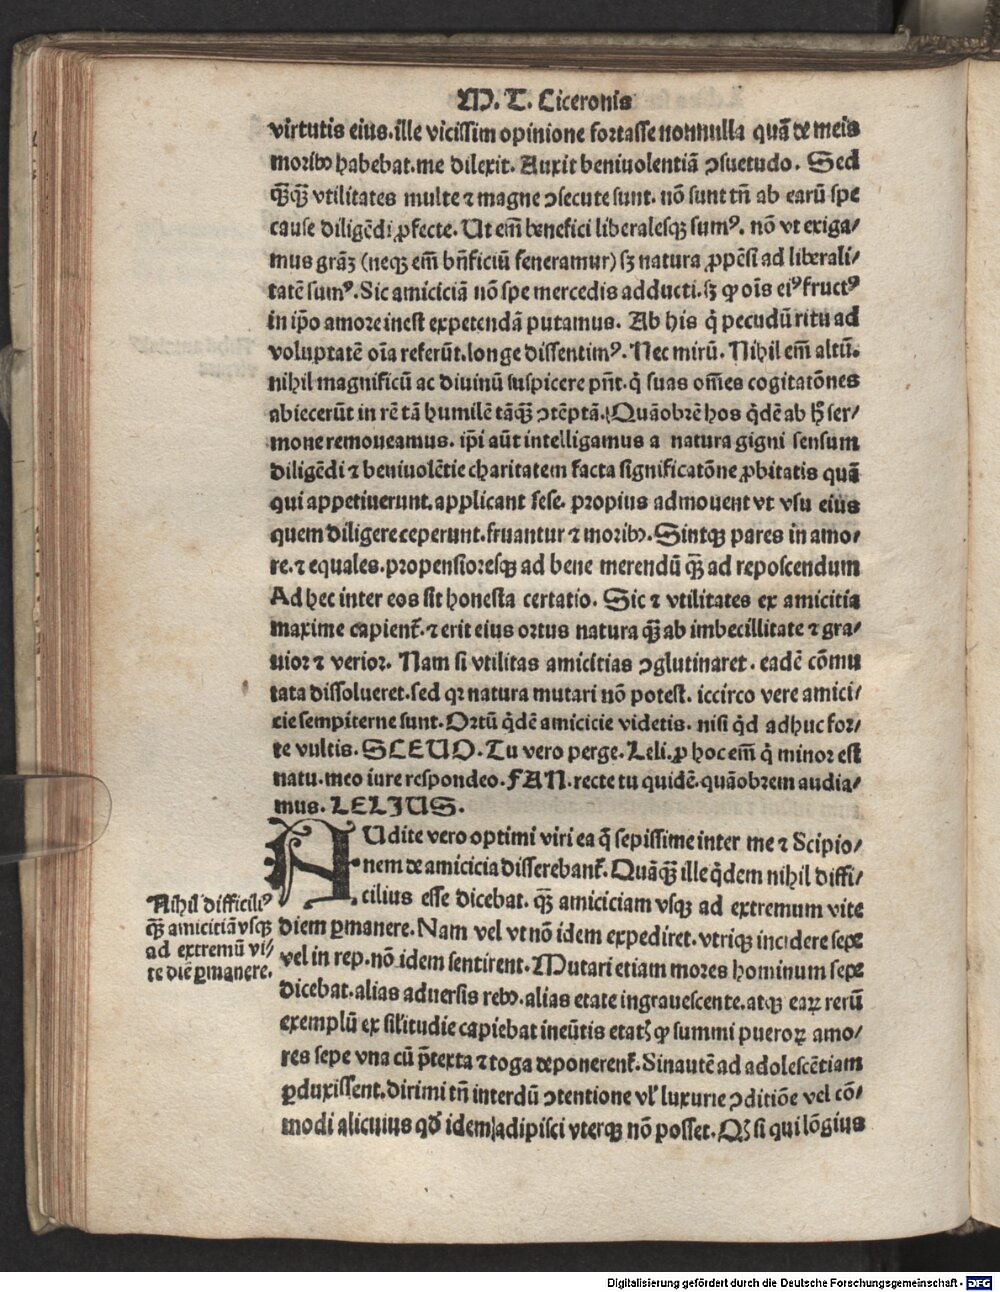 M. T. Ciceronis
virtutis eius. ille vicissim opinione fortasse nonnulla quā de meis
moribꝰ habebat. me dilexit. Auxit beniuolentiā ↄsuetudo. Sed
qꝫ̄qꝫ̄ vtilitates multe ⁊ magne ↄsecute sunt. nō sunt tn̄ ab earū spe
cause diligēdi ꝓfecte. Ut em̄ benefici liberalesqꝫ sumꝰ. nō vt exiga/
mus grāꝫ (neqꝫ em̄ bn̄ficiū feneramur) sꝫ natura ꝓpēsi ad liberali/
tatē sumꝰ. Sic amiciciā nō spe mercedis adducti. sꝫ ꝙ oīs eiꝰ fructꝰ
in ip̄o amore inest expetendā putamus. Ab his q̇ pecudū ritu ad
voluptatē oīa referūt. longe dissentimꝰ. Nec mirū. Nihil em̄ altū.
nihil magnificū ac diuinū suspicere pn̄t. q̇ suas om̄es cogitatōnes
abiecerūt in rē tā humilē tāqꝫ̄ ↄtēptā. Quāobrē hos q̇dē ab h̄ ser/
mone remoueamus. ip̄i aūt intelligamus a natura gigni sensum
diligēdi ⁊ beniuolētie charitatem facta significatōne ꝓbitatis quā
qui appetiuerunt. applicant sese. propius admouent vt vsu eius
quem diligere ceperunt. fruantur ⁊ moribꝰ. Sintqꝫ pares in amo/
re. ⁊ equales. propensioresqꝫ ad bene merendū qꝫ̄ ad reposcendum
Ad hec inter eos sit honesta certatio. Sic ⁊ vtilitates ex amicitia
maxime capient̃. ⁊ erit eius ortus natura qꝫ̄ ab imbecillitate ⁊ gra/
uior ⁊ verior. Nam si vtilitas amicitias ↄglutinaret. eadē cōmu
tata dissolueret. sed qꝛ natura mutari nō potest. iccirco vere amici/
cie sempiterne sunt. Ortū q̇dē amicicie videtis. nisi q̇d adhuc for/
te vultis. SCEUO. Tu vero perge. Leli. ꝓ hoc em̄ q̇ minor est
natu. meo iure respondeo. FAN. recte tu quidē. quāobrem audia/
mus. LELIUS.
AUdite vero optimi viri ea q̄ sepissime inter me ⁊ Scipio/
nem de amicicia disserebant̃. Quāqꝫ̄ ille q̇dem nihil diffi/
cilius esse dicebat. qꝫ̄ amiciciam vsqꝫ ad extremum vite
diem ꝑmanere. Nam vel vt nō idem expediret. vtriqꝫ incidere sepe
vel in rep. nō idem sentirent. Mutari etiam mores hominum sepe
dicebat. alias aduersis rebꝰ. alias etate ingrauescente. atqꝫ eaꝝ rerū
exemplū ex sil̃itudie capiebat ineūtis etatꝭ ꝙ summi pueroꝝ amo/
res sepe vna cū p̄texta ⁊ toga deponerent̃. Sin autē ad adolescētiam
ꝑduxissent. dirimi tn̄ interdū ↄtentione vl̃ luxurie ↄditiōe vel cō/
modi alicuius qd̓ idem adipisci vterqꝫ nō posset. Qꝫ si qui lōgius
Nihil difficiliꝰ
qꝫ̄ amicitiā vsqꝫ
ad extremū vi/
te diē ꝑmanere.
Digitalisierung gefördert durch die Deutsche Forschungsgemeinschaft - DFG